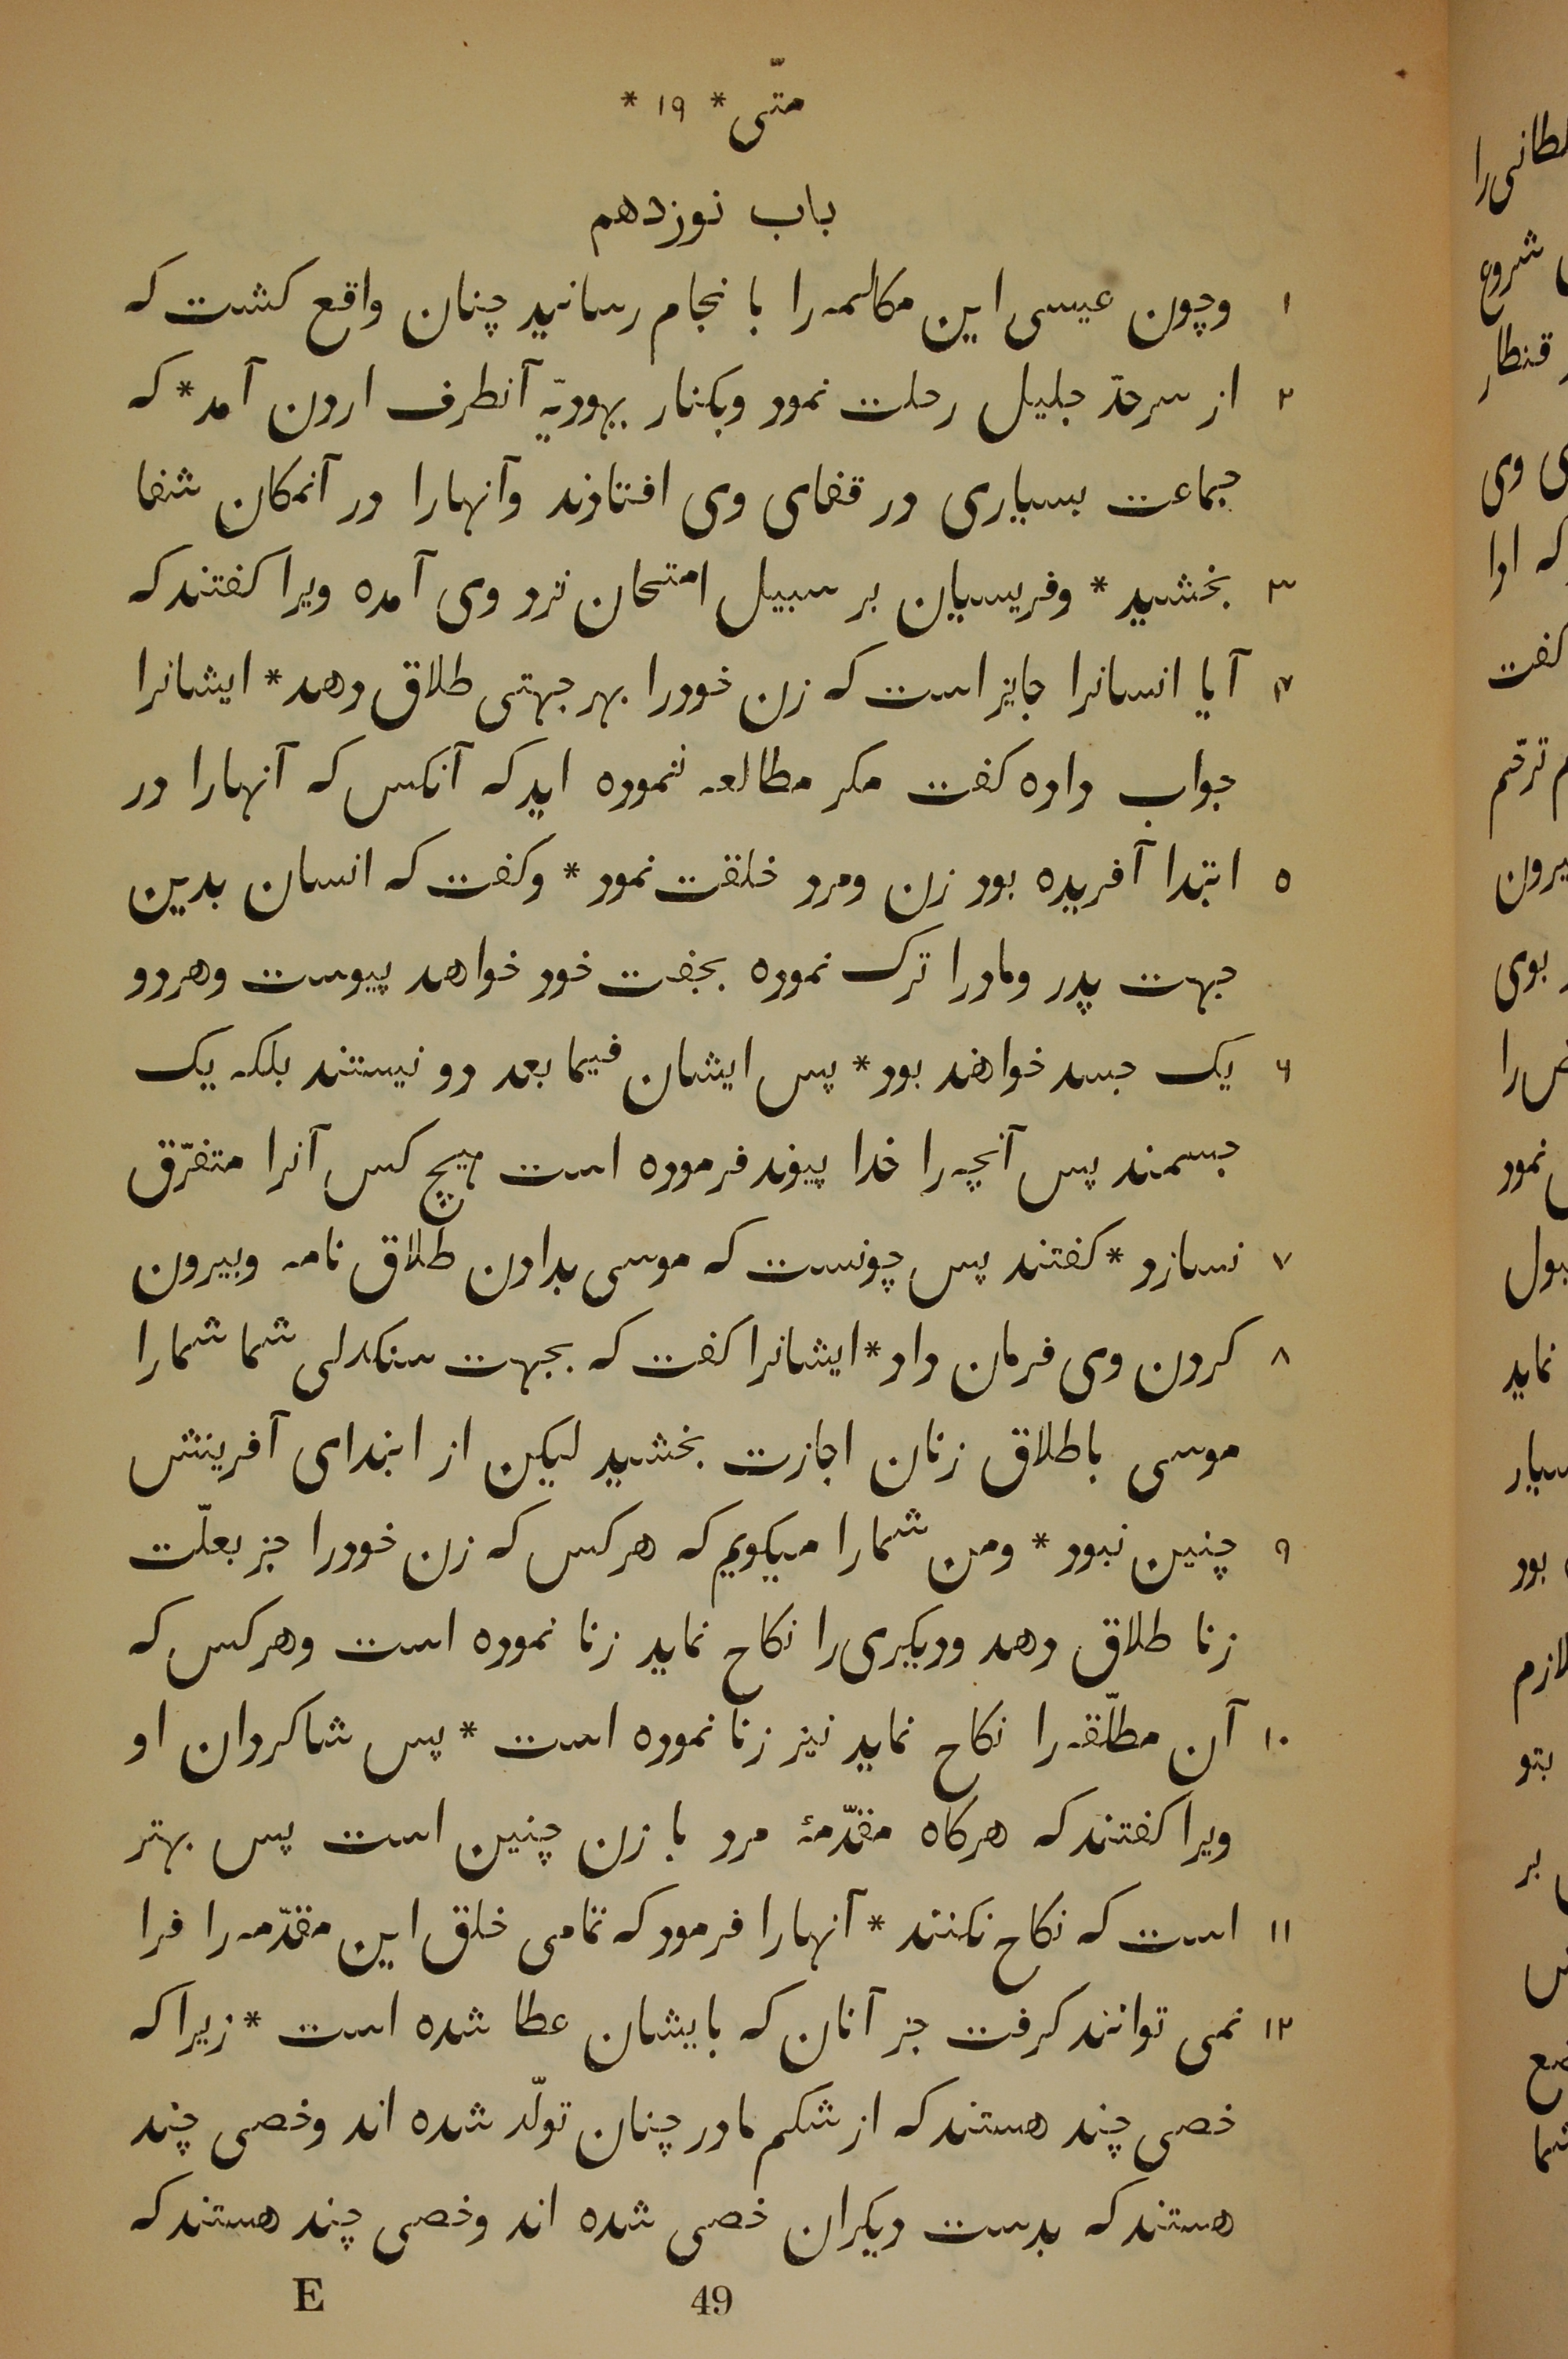 متّی * ۱۹ *
باب نوزدهم
۱ وچون عیسی این مکالمه را با نجام رسانید چنان واقع کشت که
۲ از سرحدّ جلیل رحلت نمود وبکنار یهودیّه آنطرف اردن آمد * که
جماعت بسیاری در قفای وی افتادند وآنهارا در آنمکان شفا
۳ بخشید * وفریسیان بر سبیل امتحان نزد وی آمده ویرا کفتند که
۴ آیا انسانرا جایز است که زن خودرا بهر جهتی طلاق دهد * ایشانرا
جواب داده کفت مکر مطالعه ننموده اید که آنکس که آنهارا در
۵ ابتدا آفریده بود زن ومرد خلقت نمود * وکفت که انسان بدین
جهت پدر ومادرا ترک نموده بجفت خود خواهد پیوست وهردو
۶ یک جسد خواهند بود * پس ایشان فیما بعد دو نیستند بلکه یک
جسمند پس آنچه را خدا پیوند فرموده است هیچ کس آنرا متفرّق
۷ نسازد * کفتند پس چونست که موسی بدادن طلاق نامه وبیرون
۸ کردن وی فرمان داد * ایشانرا کفت که بجهت سنکدلی شما شمارا
موسی باطلاق زنان اجازت بخشید لیکن از ابتدای آفرینش
۹ چنین نبود * ومن شمارا میکویم که هرکس که زن خودرا جز بعلّت
زنا طلاق دهد ودیکری را نکاح نماید زنا نموده است وهرکس که
۱۰ آن مطلّقه را نکاح نماید نیز زنا نموده است * پس شاکردان او
ویرا کفتند که هرکاه مقدّمهٔ مرد با زن چنین است پس بهتر
۱۱ است که نکاح نکنند * آنهارا فرمود که تمامی خلق این مقدّمه را فرا
۱۲ نمی توانند کرفت جز آنان که بایشان عطا شده است * زیرا که
خصی چند هستند که از شکم مادر چنان تولّد شده اند وخصی چند
هستند که بدست دیکران خصی شده اند وخصی چند هستند که
E 49
لطانی را
شروع
قنطار
ی وی
که اورا
کفت
م ترحّم
یرون
بوی
را
نمود
نماید
بود
لازم
بتو
بر